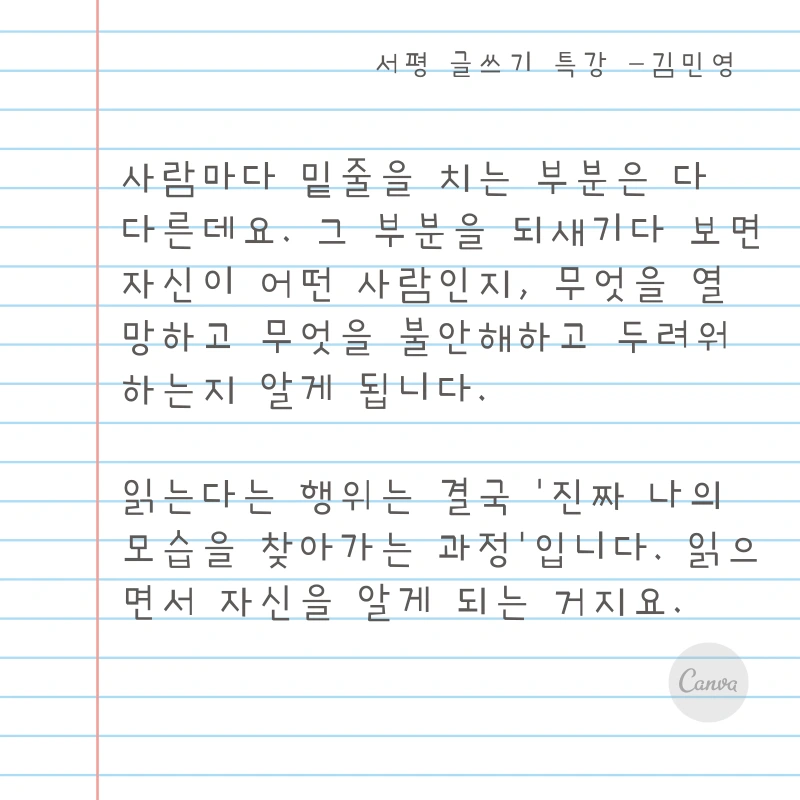 서평 글쓰기 특강 -김민영
사람마다 밑줄을 치는 부분은 다
다른데요. 그 부분을 되새기다 보면
자신이 어떤 사람인지, 무엇을 열
망하고 무엇을 불안해하고 두려워
하는지 알게 됩니다.
읽는다는 행위는 결국 '진짜 나의
모습을 찾아가는 과정'입니다. 읽으
면서 자신을 알게 되는 거지요.
Canva